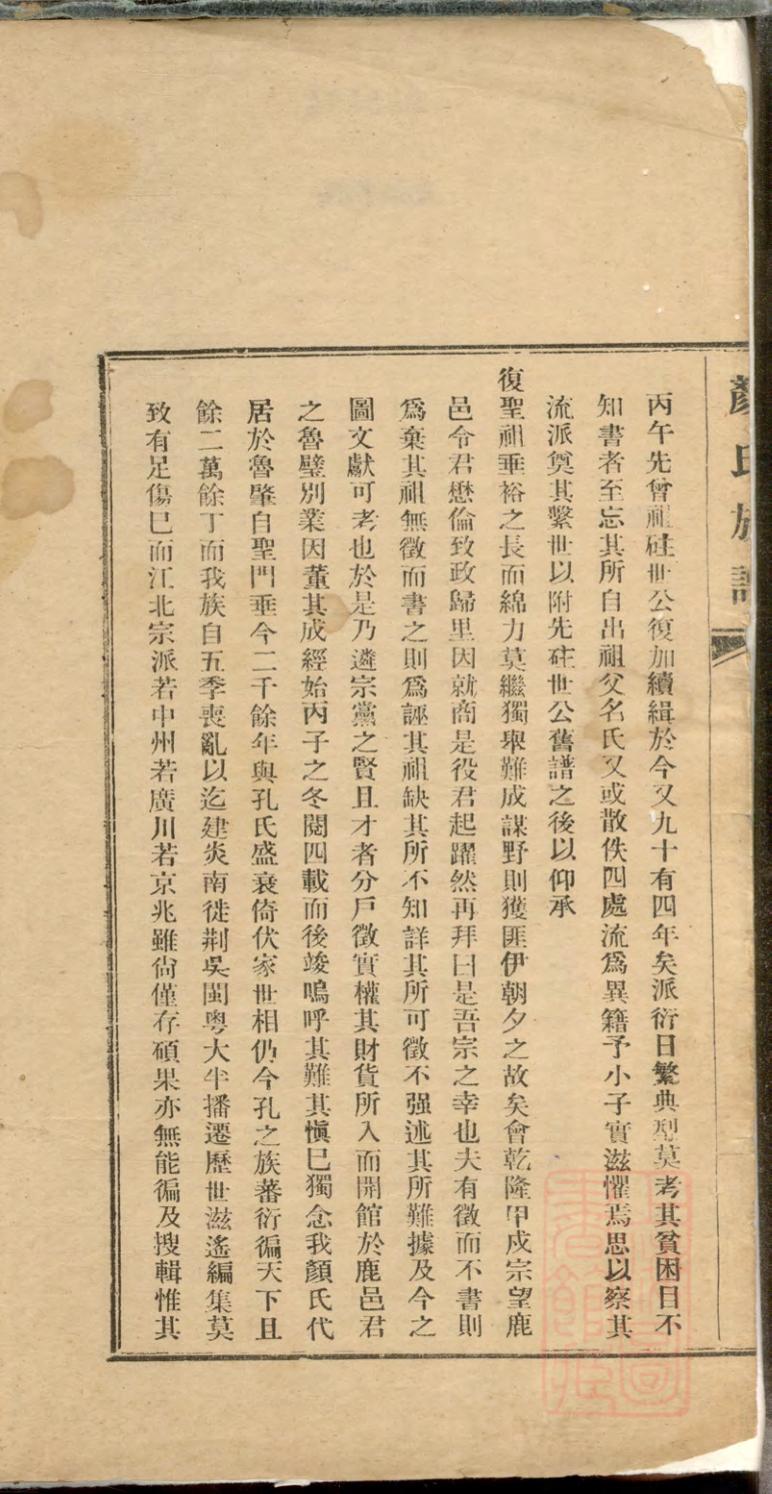 顏氏族譜
丙午先曾祖硅世公復加續緝於今又九十有四年矣派衍日繁典型莫考其貧困目不
知書者至忘其所自出祖父名氏又或散佚四處流爲異籍予小子實滋懼焉思以察其
流派奠其繫世以附先硅世公舊譜之後以仰承
復聖祖垂裕之長而綿力莫繼獨舉難成謀野則獲匪伊朝夕之故矣會乾隆甲戍宗望鹿
邑令君懋倫致政歸里因就商是役君起躍然再拜曰是吾宗之幸也夫有徵而不書則
爲棄其祖無徵而書之則爲誣其祖缺其所不知詳其所可徵不强述其所難據及今之
圖文獻可考也於是乃遴宗黨之賢且才者分戶徵實權其財貨所入而開館於鹿邑君
之魯壁別業因董其成經始丙子之冬閱四載而後竣嗚呼其難其愼巳獨念我顏氏代
居於魯肇自聖門垂今二千餘年與孔氏盛衰倚伏家世相仍今孔之族蕃衍徧天下且
餘二萬餘丁而我族自五季喪亂以迄建炎南徙荆吳閩粵大半播遷歷世滋遙編集莫
致有足傷巳而江北宗派若中州若廣川若京兆雖尙僅存碩果亦無能徧及搜輯惟其